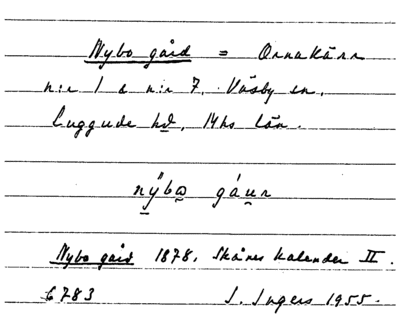 Nybo gård = Ornakärr
n:r 1 a n:r 7. Väsby sn,
Luggude hd, Mhs län.
nÿbo gáur
Nybo gård 1878, Skånes Kalender II.
6783 I. Ingers 1955.